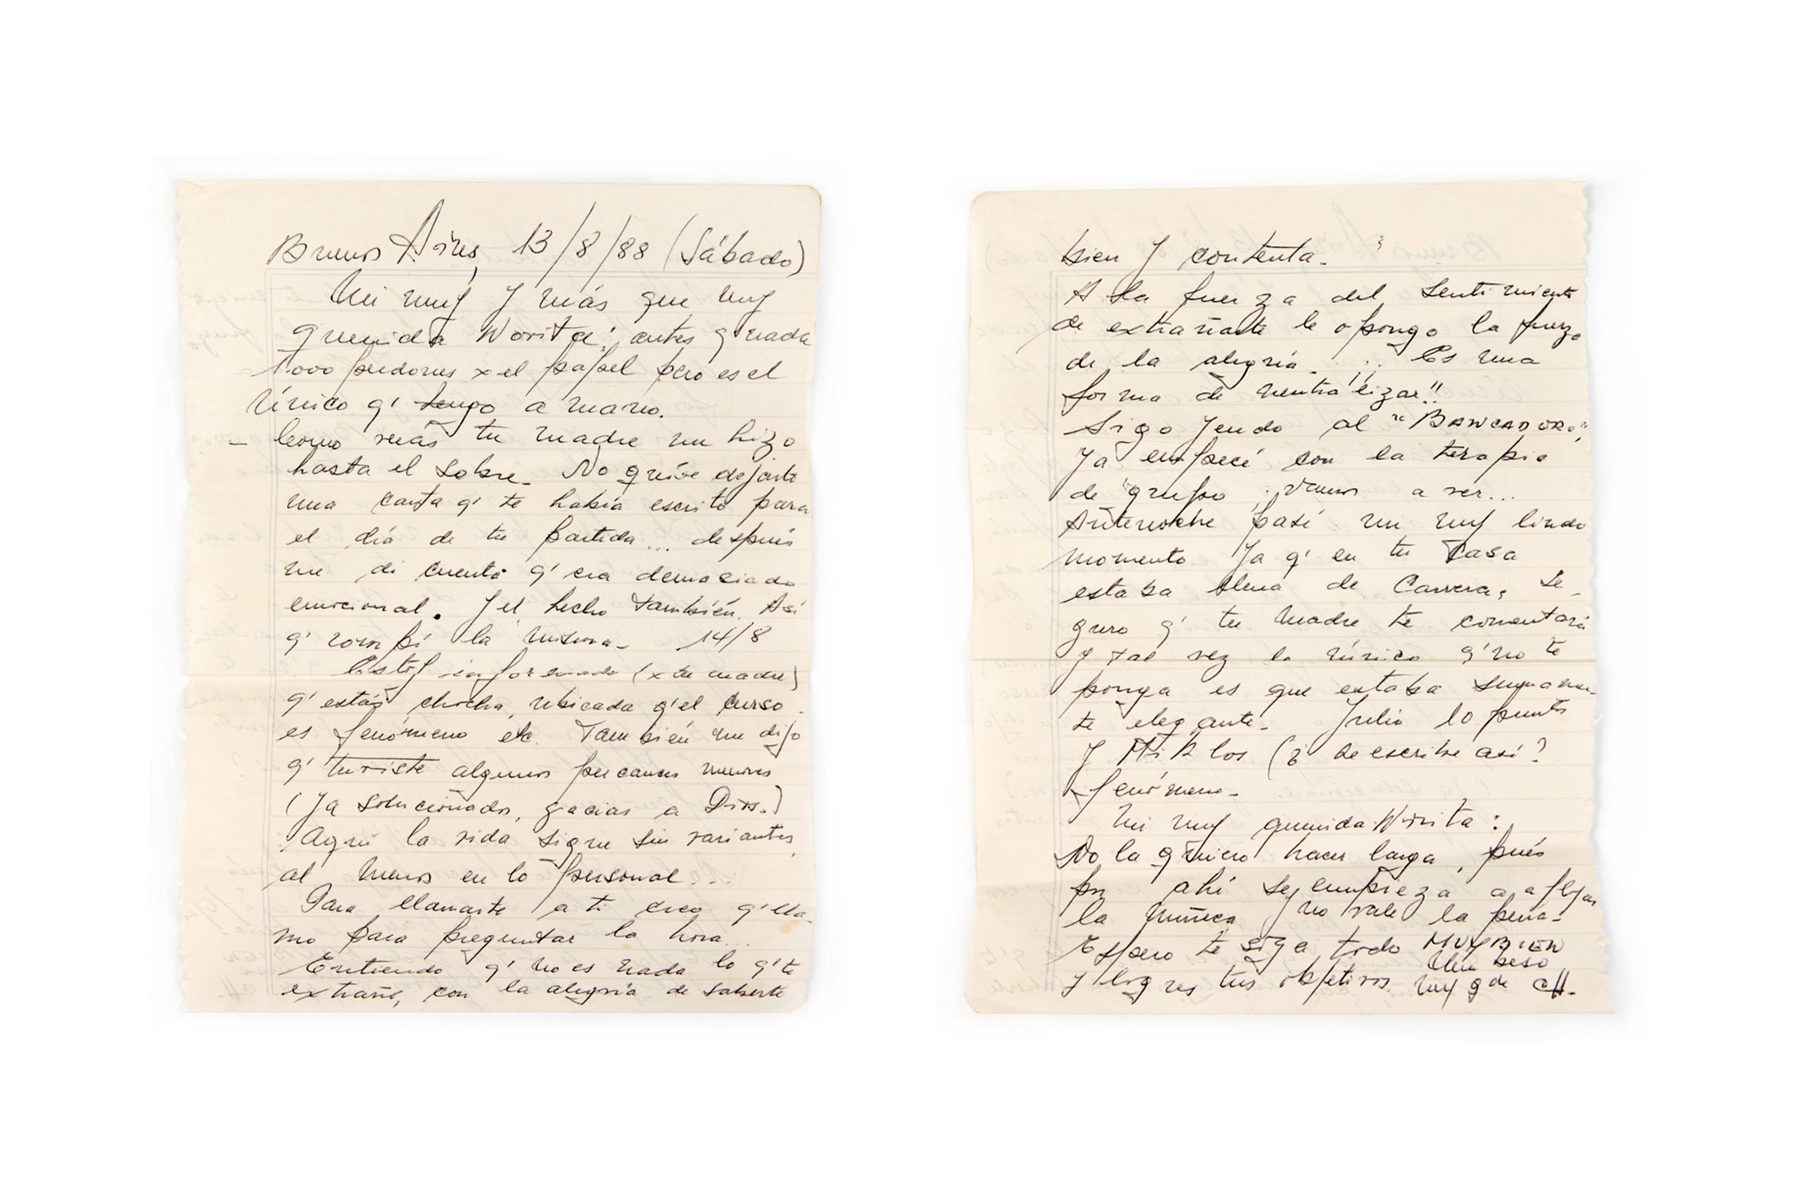 Buenos Aires, 13/8/88 (Sábado)
Mi muy y más que muy
querida Norita: antes q' nada
1.000 perdones x el papel pero es el
único q' tengo a mano.
– Como verás tu madre me hizo
hasta el sobre. No quise dejarte
una carta q' te había escrito para
el día de tu partida... después
me di cuenta q' era demasiado
emocional. Y el hecho también. Así
q' rompí la misma. 14/8
Estoy informado (x tu madre)
q' estás chocha, ubicada q' el curso
es fenómeno etc. También me dijo
q' tuviste algunos percances menores
(ya solucionados, gracias a Dios.)
Aquí la vida sigue sin variantes,
al menos en lo personal...
Para llamarte a ti creo q' lla-
mo para preguntar la hora...
Entiendo q' no es nada lo q' te
extraño, con la alegría de saberte
bien y contenta.
A la fuerza del sentimiento
de extrañarte le opongo la fuerza
de la alegría. ... Es una
forma de neutralizar!!
Sigo yendo al "BANCADERO",
ya empecé con la terapia
de grupo, veremos a ver...
Antenoche pasé un muy lindo
momento ya q' en tu casa
estaba llena de Carrera, Se-
guro q' tu madre te comentará
y tal vez lo único q' no te
ponga es que estaba sumamen-
te elegante. Julio lo puntó
y Miklos (¿ se escribe así?
fenómeno.
Mi muy querida Norita:
No la quiero hacer larga, pués
por ahí se empieza a aflojar
la muñeca y no vale la pena.
Espero te siga todo MUY BIEN
y logres tus objetivos. Un beso
muy gde CH.